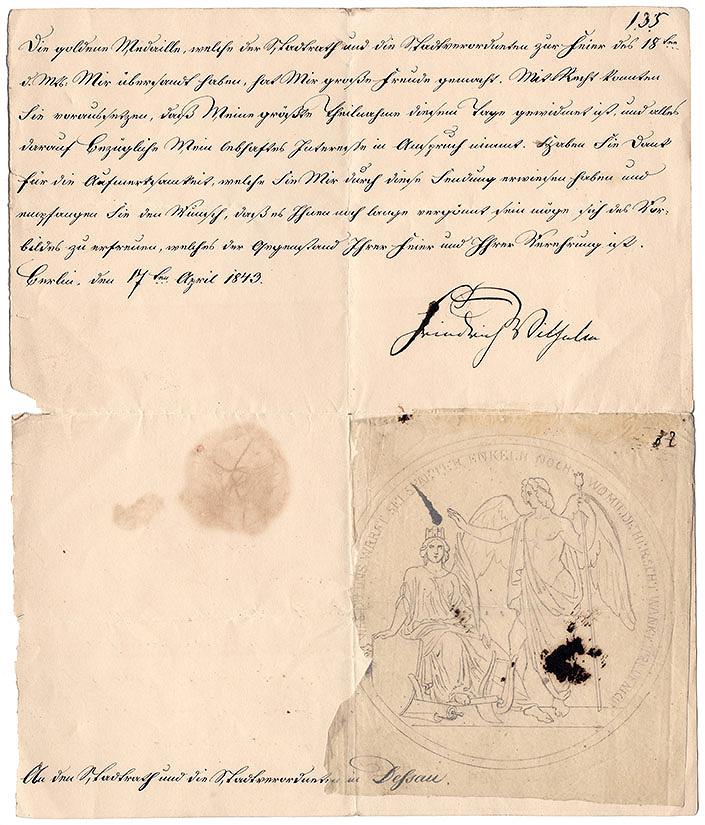 135
Die goldene Medaille, welche der Stadtrath und die Stadtverordneten zur Feier des 18ten
d. Mts. Mir übersandt haben, hat Mir große Freude gemacht. Mit Recht konnten
Sie voraussetzen, daß Meine größte Theilnahme diesem Tage gewidmet ist, und alles
darauf Bezügliche Mein lebhaftes Interesse in Anspruch nimmt. Haben Sie Dank
für die Aufmerksamkeit, welche Sie Mir durch diese Sendung erwiesen haben und
empfangen Sie den Wunsch, daß es Ihnen noch lange vergönnt sein möge sich des Vor-
bildes zu erfreuen, welches der Gegenstand Ihrer Feier und Ihrer Verehrung ist.
Berlin, den 17ten April 1843.
Friedrich Wilhelm
ENKELN NOCH WO
An den Stadtrath und die Stadtverordneten in Dessau.